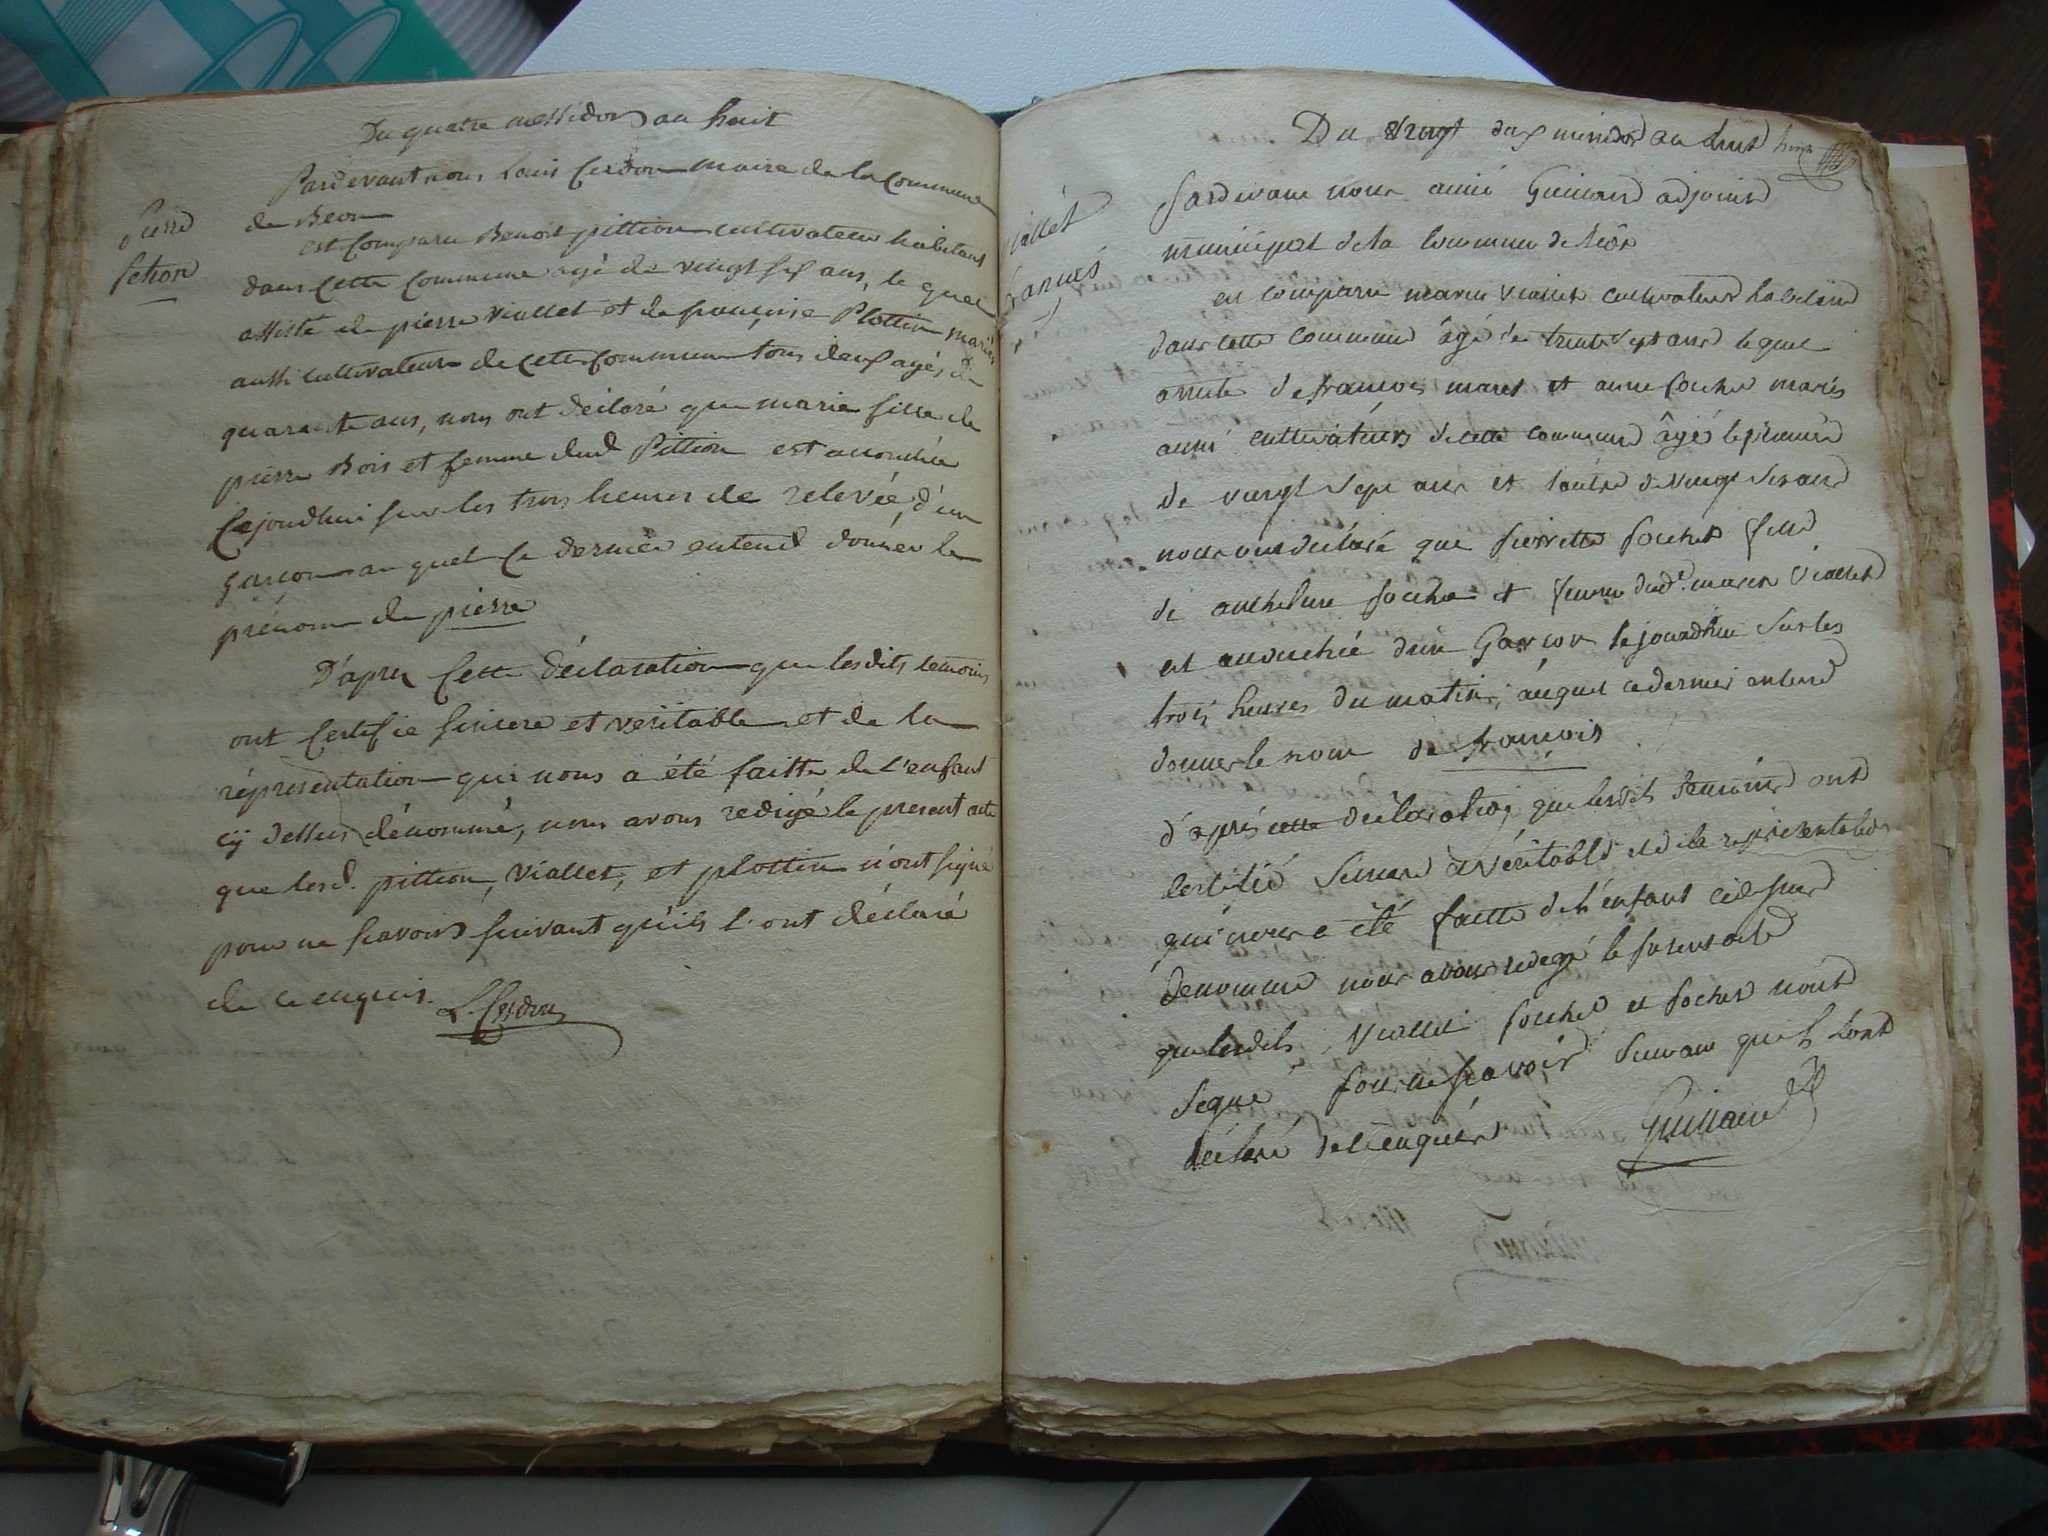 Du quatre messidor an huit
Pardevant nous Louis Cerdon maire de la Commune
de Beon
Pierre
Petion
est Comparu Benoit pittion cultivateur habitant
dans cette commune agé de vingt six ans, le quel
assisté de pierre Viallet et de françoise Plottin mariés
aussi cultivateurs de cette commune tous deux agés de
quarante ans, nous ont déclaré que marie fille de
pierre Bois et femme dud Pittion est accouchée
Cejourdhui sur les trois heures de relevée, d'un
garçon au quel ce dernier entend donner le
prénom de pierre
D'apres Cette déclaration que lesdits temoins
ont Certifie sincere et veritable et de la
répresentation qui nous a été faitte de l'enfant
cy dessus dénommé, nous avons redigé le present acte
que lesd. pittion, Viallet, et plottin n'ont signé
pour ne scavoir suivant qu'ils l'ont déclaré
de ce enquis. L. Cerdon
Du vingt dux messidor an huit
viallet
francois
Pardevant nous aimé Guilland adjoint
municipal de la Commune de béon
est comparu marin Viallet cultivateur habitant
dans cette commune âgé de trente sept ans le quel
assisté de francois maret et anne pochet mariés
aussi cultivateurs de cette commune âgé le premier
de vingt sept ans et l'autre de vingt six ans
nous ont déclaré que pierrette pochet fille
de anthelme pochet et femme dud. marin Viallet
est accouchée d'un Garcon cejourdhui sur les
trois heures du matin, auquel ce dernier entend
donner le nom de francois
d'après cette déclaration que lesdits temoins ont
certifié sincere et véritable et de la représentation
qui nous a été faitte de l'enfant ci dessus
denommé nous avons redegé le present acte
que lesdits Viallet pochet et pochet n'ont
signé pour ne scavoir suivant qu'ils l'ont
déclaré de ce enquiers Guilland